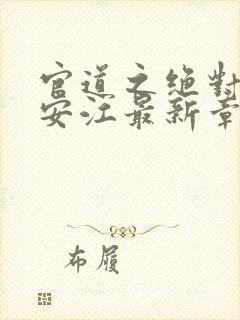 官道之绝对
安江最新章
布履